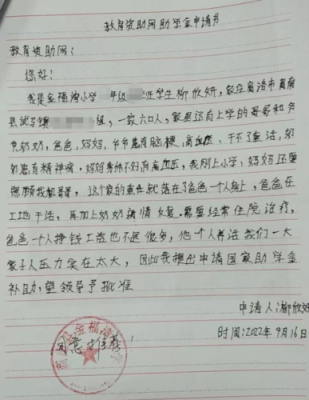 教育资助网助学金申请书
教育资助网:
您好!
我是金福湾小学 年级 班学生柳欣妍,家住商洛市
县 镇 组,一家六口人,家里还有上学的哥哥和
爷奶奶,爸爸,妈妈,爷爷患有脑梗,高血压,干不了重活,奶
奶患有精神病,妈妈身体不好有高血压,我刚上小学,妈妈还要
照顾我 ,这个家的重任就落在了爸爸一个人身上,爸爸在
工地干活,再加上奶奶病情反复,需要经常住院治疗,
爸爸一个人挣钱工资也不是很多,他一个人养活我们一大
家子人压力实在太大,因此我提出申请国家助学金
补助,望领导予批准
申请人:柳欣妍
时间:2022年9月16日
同意推荐!